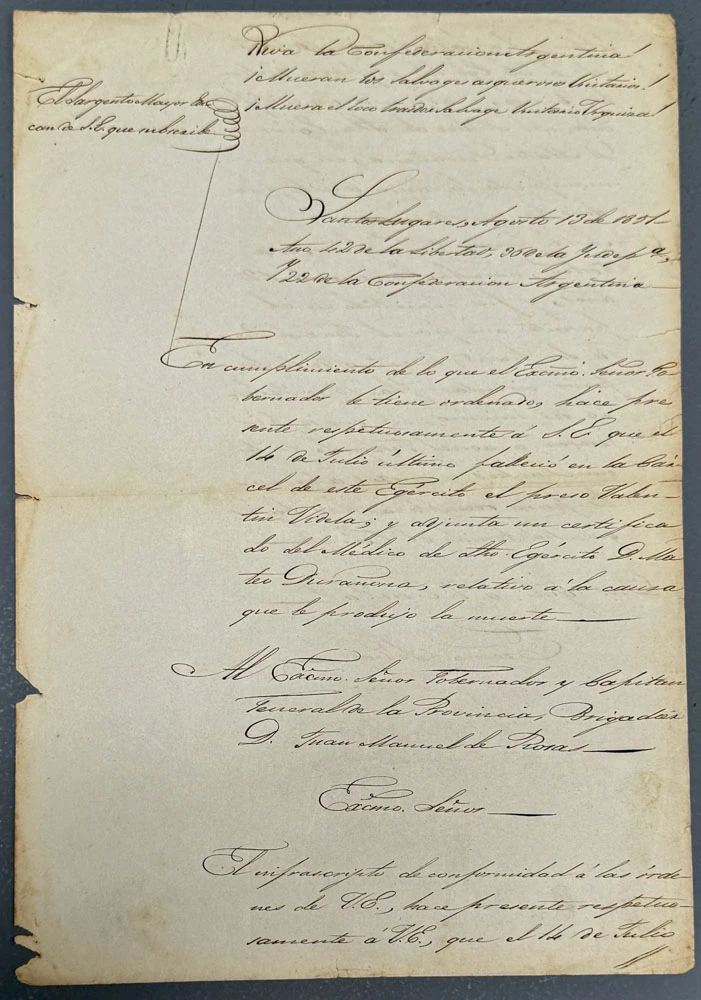 Viva la Confederacion Argentina!
¡Mueran los Salvages asquerosos Unitarios!
¡Muera el loco traidor Salvage Unitario Urquiza!
El Sargento Mayor Ede-
can de S.E. que subscribe
Santos Lugares, Agosto 13 de 1851-
Año 42 de la Libertad, 36 de la Yndepª,
y 22 de la Confederacion Argentina
En cumplimiento de lo que el Excmo. Señor Go-
bernador le tiene ordenado, hace pre
sente respetuosamente á S.E. que el
14 de Julio último falleció en la Cár-
cel de este Egército el preso Valen-
tin Videla; y adjunta un certifica
do del Médico de dho. Egército D. Ma
teo Durañona, relativo á la causa
que le produjo la muerte
Al Excmo. Señor Gobernador y Capitan
General de la Provincia, Brigadier
D. Juan Manuel de Rosas
Excmo. Señor
El infrascripto de conformidad á las órde-
nes de V.E., hace presente respetuo-
samente á V.E., que el 14 de Julio